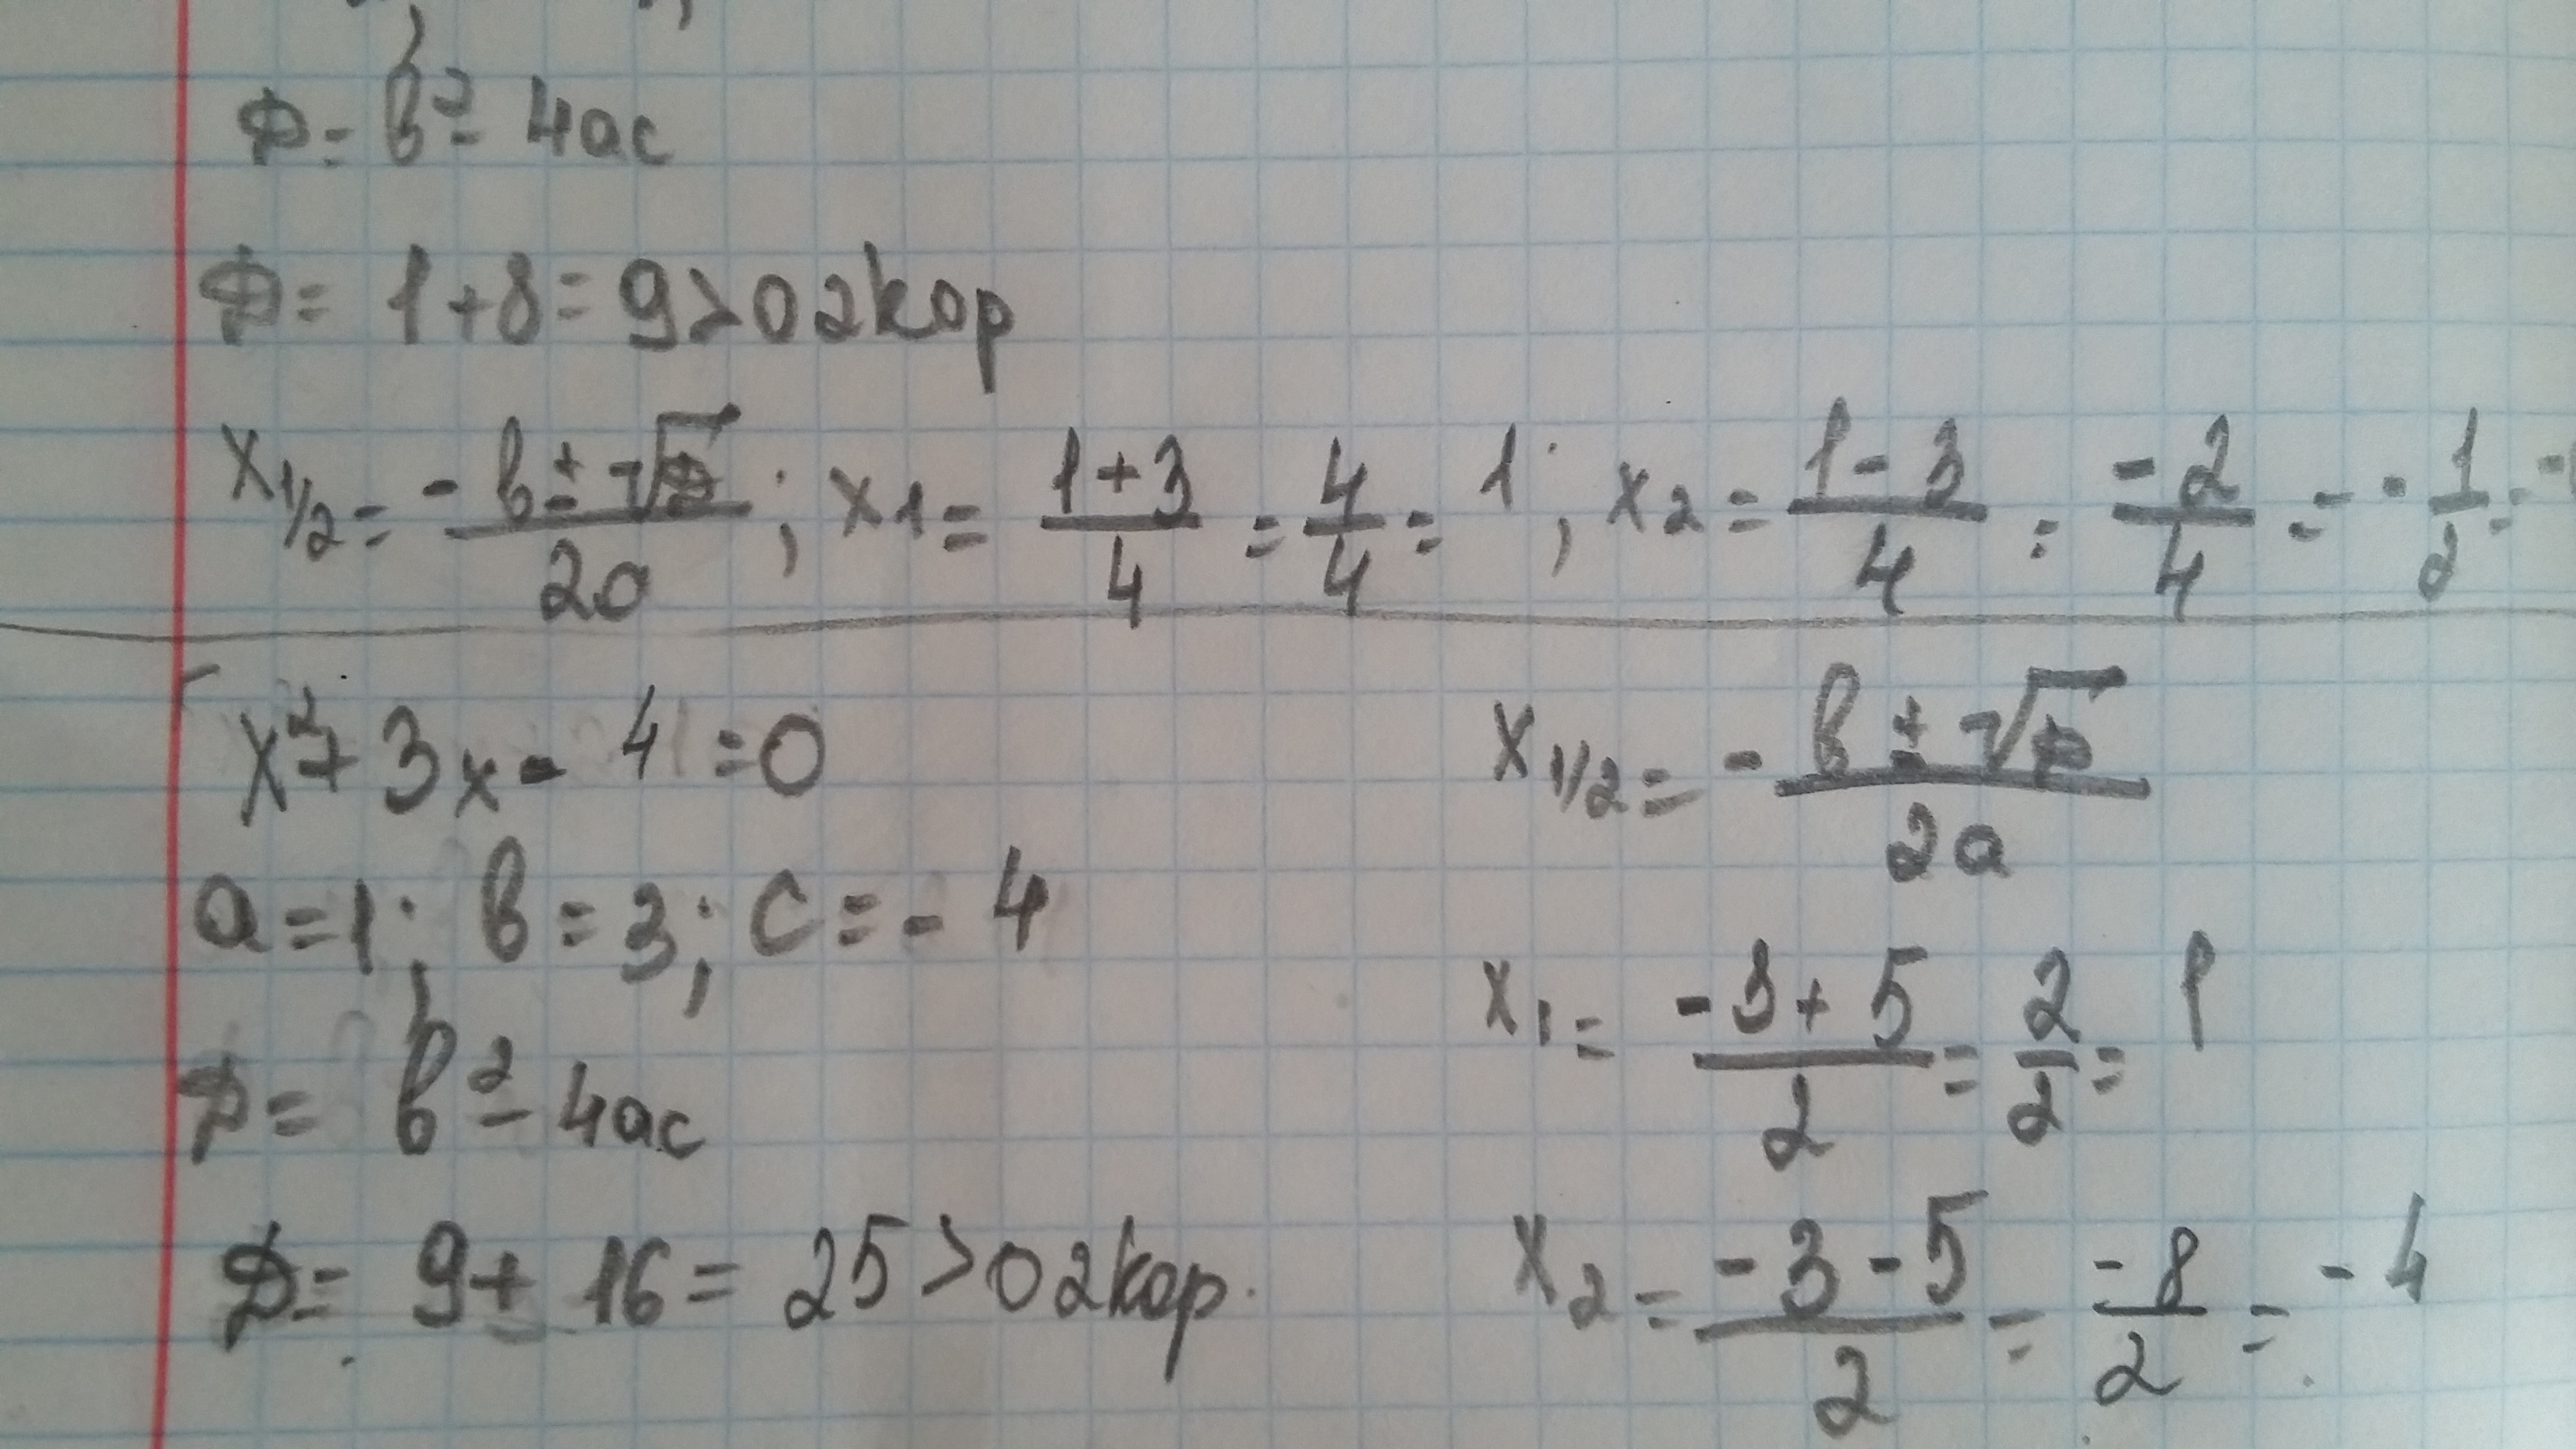 D = b² - 4ac
D = 1 + 8 = 9 > 0 2 кор
x1/2 = - b ± √D / 2a ; x1 = 1 + 3 / 4 = 4/4 = 1 ; x2 = 1 - 3 / 4 = -2/4 = - 1/2 = -
x² + 3x - 4 = 0
a = 1 ; b = 3 ; c = - 4
D = b² - 4ac
D = 9 + 16 = 25 > 0 2 кор.
x1/2 = - b ± √D / 2a
x1 = -3 + 5 / 2 = 2/2 = 1
x2 = -3 - 5 / 2 = -8/2 = - 4